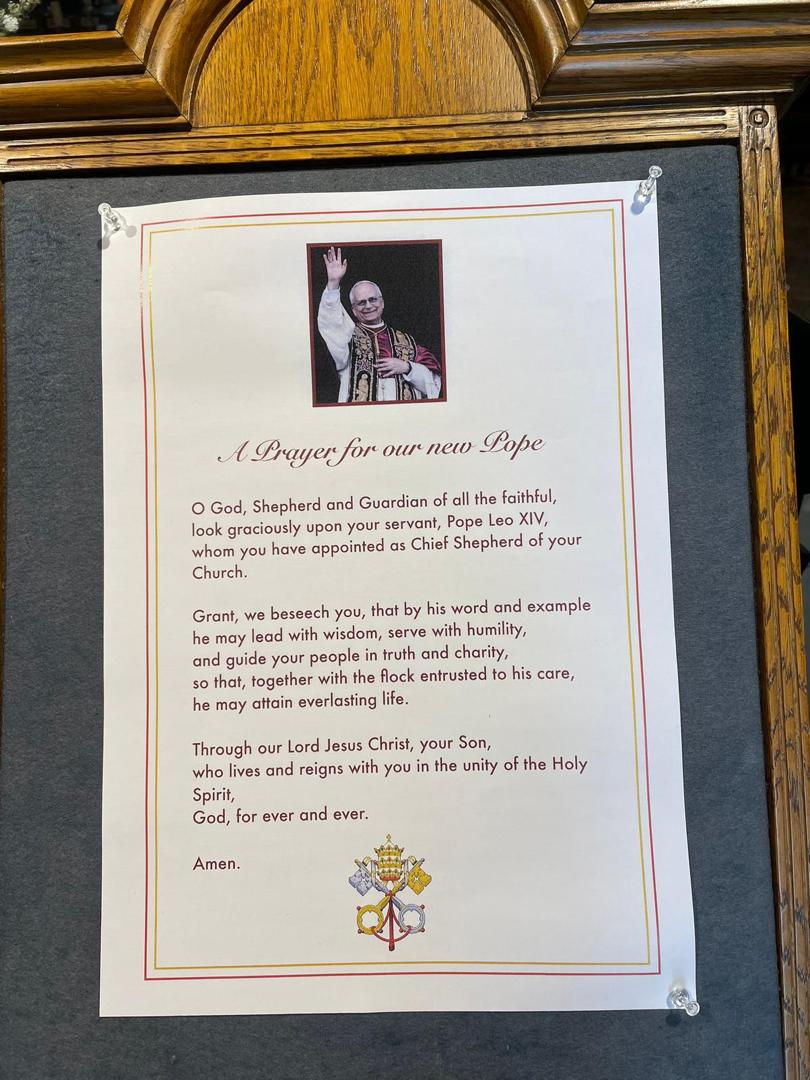 A Prayer for our new Pope
O God, Shepherd and Guardian of all the faithful,
look graciously upon your servant, Pope Leo XIV,
whom you have appointed as Chief Shepherd of your
Church.
Grant, we beseech you, that by his word and example
he may lead with wisdom, serve with humility,
and guide your people in truth and charity,
so that, together with the flock entrusted to his care,
he may attain everlasting life.
Through our Lord Jesus Christ, your Son,
who lives and reigns with you in the unity of the Holy
Spirit,
God, for ever and ever.
Amen.